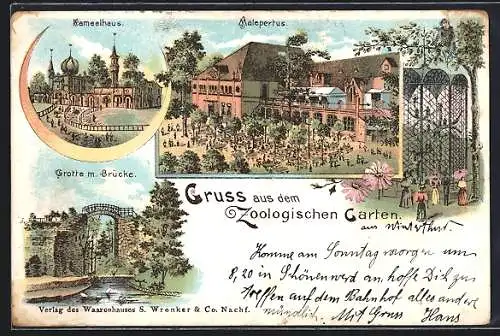 Kameelhaus.
Malepertus.
Grotte m. Brücke.
Gruss aus dem
Zoologischen Garten.
aus Winterthur
Komme am Sonntag morgen um
8,20 in Schönenwerd an, hoffe Dich zu
treffen auf dem Bahnhof alles andere
mündlich. Mit Gruss Hans
Verlag des Waarenhauses S. Wronker & Co. Nachf.